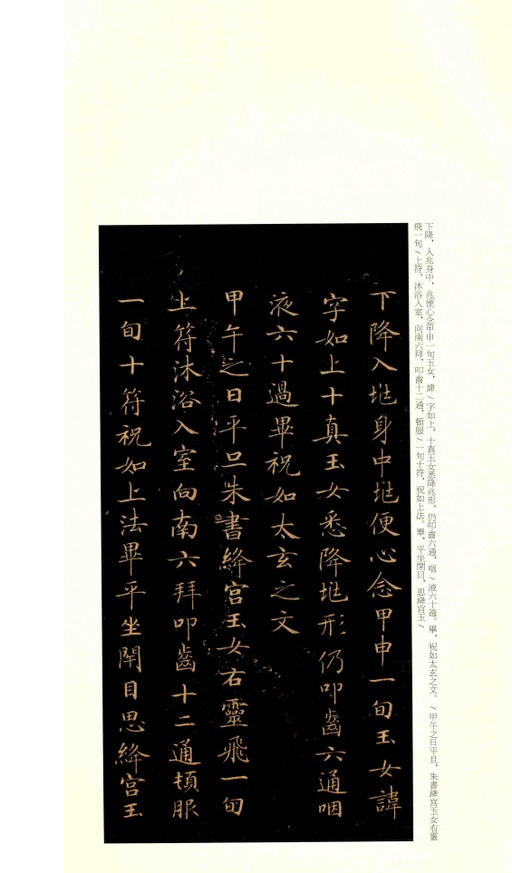 下降，入兆身中，兆便心念甲申一旬玉女，諱/字如上，十真玉女悉降兆形，仍叩齒六通，咽/液六十過。畢，祝如太玄之文。/甲午之日平旦，朱書絳宮玉女右靈
飛一旬/上符，沐浴入室，向南六拜，叩齒十二通，頓服/一旬十符，祝如上法。畢，平坐閉目，思絳宮玉/
下降入兆身中兆便心念甲申一旬玉女諱
字如上十真玉女悉降兆形仍叩齒六通咽
液六十過畢祝如太玄之文
甲午之日平旦朱書絳宮玉女右靈飛一旬
上符沐浴入室向南六拜叩齒十二通頓服
一旬十符祝如上法畢平坐閉目思絳宮玉